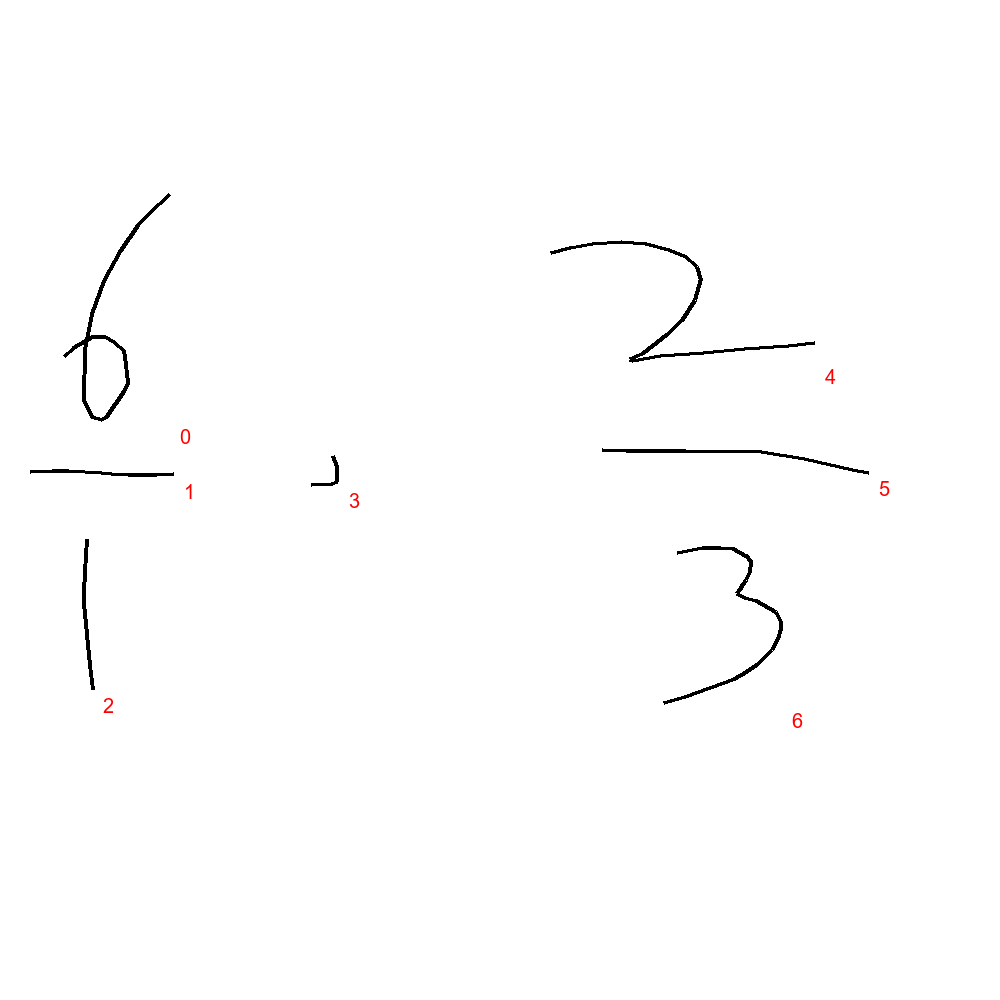 6/1 · 2/3
0
1
2
3
4
5
6